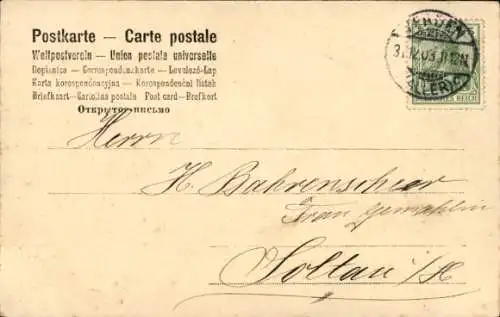 Postkarte — Carte postale
Weltpostverein — Union postale universelle
Dopisnice — Correspondenzkarte — Levelező-Lap
Karta korespondencyjna — Korespondenční lístek
Briefkaart — Cartolina postale Post card — Brefkort
Открытое письмо
VERDEN
31.12.03.11-12N
(ALLER)
REICH
Herrn
H. Bahrenscheer
Frau Gemahlin
Soltau i/H